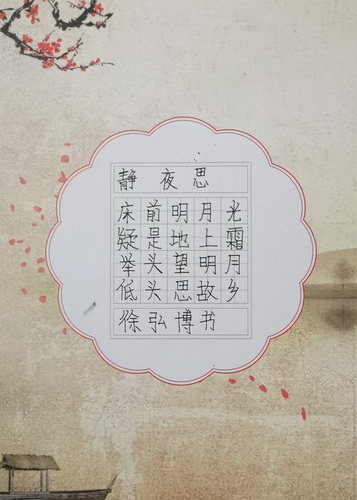 静夜思
床前明月光
疑是地上霜
举头望明月
低头思故乡
徐弘博书